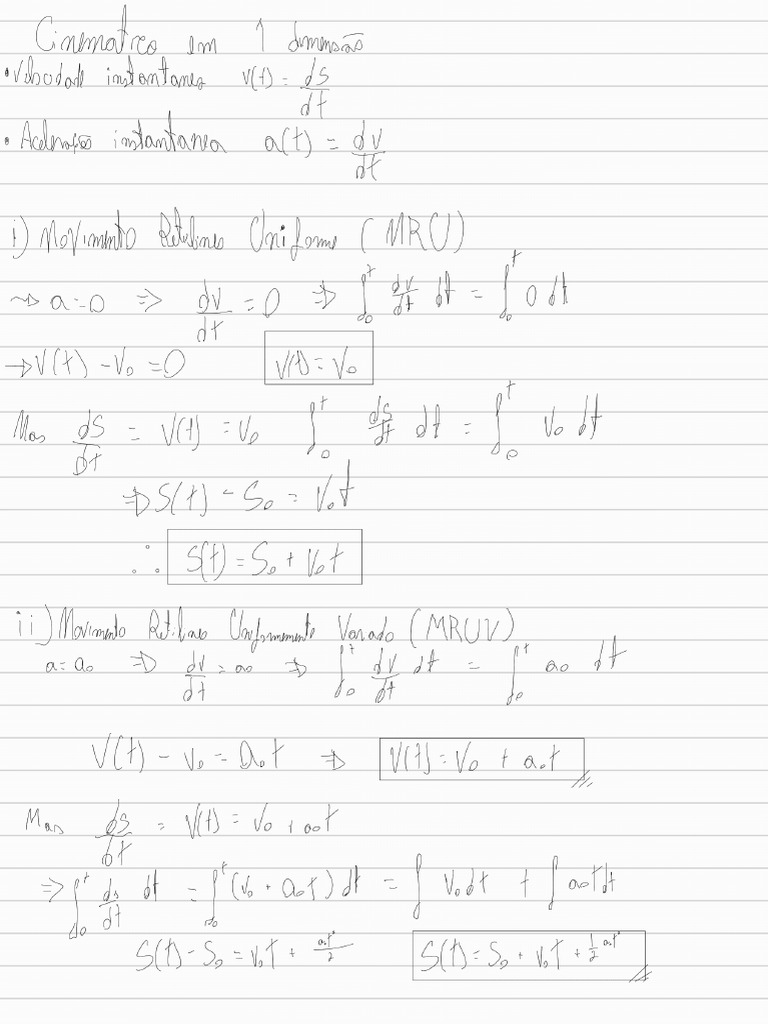 Cinematica em 1 dimensão
• Velocidade instantanea v(t) = ds/dt
• Aceleração instantanea a(t) = dv/dt
i) Movimento Retilineo Uniforme (MRU)
~> a = 0 => dv/dt = 0 => ∫₀ᵗ dv/dt dt = ∫₀ᵗ 0 dt
→ V(t) - V₀ = 0 V(t) = V₀
Mas ds/dt = V(t) = V₀ ∫₀ᵗ ds/dt dt = ∫₀ᵗ V₀ dt
=> S(t) - S₀ = V₀t
∴ S(t) = S₀ + V₀t
ii) Movimento Retilineo Uniformemente Variado (MRUV)
a = a₀ => dv/dt = a₀ => ∫₀ᵗ dv/dt dt = ∫₀ᵗ a₀ dt
V(t) - V₀ = a₀t => V(t) = V₀ + a₀t
Mas ds/dt = V(t) = V₀ + a₀t
=> ∫₀ᵗ ds/dt dt = ∫₀ᵗ (V₀ + a₀t) dt = ∫ V₀dt + ∫ a₀tdt
S(t) - S₀ = V₀t + a₀t²/2 S(t) = S₀ + V₀t + 1/2 a₀t²